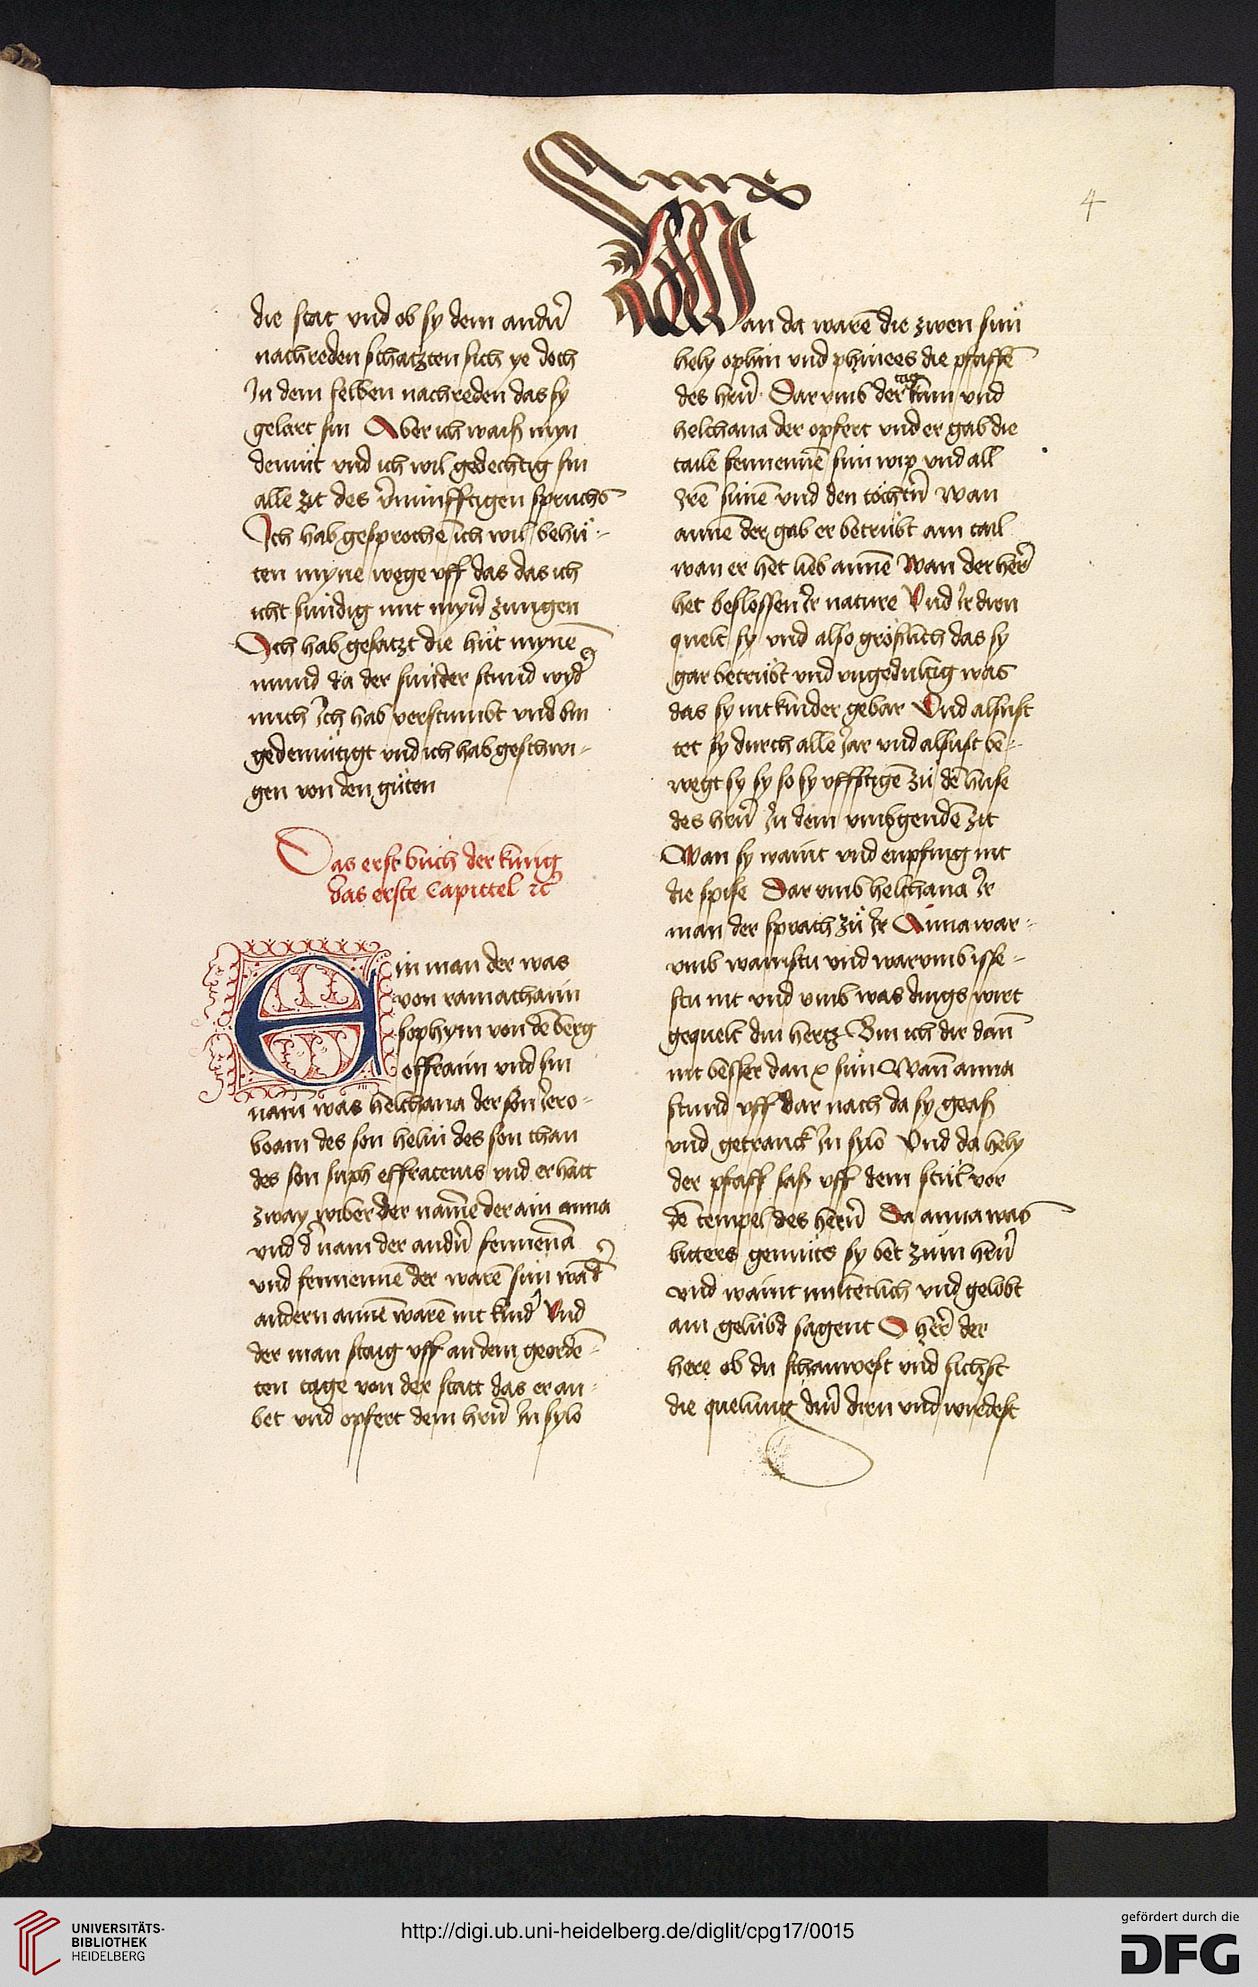 4
die stat vnd ob sy dem andn̄
nachreden schatzten sich ye doch
In dem selben nachreden das sy
gelert sin Aber ich waiß myn
demüt vnd ich wil gedechtig sin
alle zit des v̄nünfftigen spruchs
Ich hab gesprochē ich wil behü-
ten myne wege vff das das ich
icht sündig mit myn̄ zungen
Ich hab gesatzt die hüt mynē
mund da der sünder stund wyd̄
mich Ich hab verstumbt vnd bin
gedemütigt vnd ich hab geschwi-
gen von den güten
Das erst buch der kunig
das erste Capittel ꝛc
Ein man der was
von ramathaim
sophym von dē berg
effraim vnd sin
nam was helchana der son Iero-
boam des son heliu des son thau
des son suph effrateus vnd er hatt
zway wiber der namē der ain anna
vnd d̄ nam der andn̄ fennenā
vnd fennennē der warē sün wan d̄
andern annē warē nit kind̄ Vnd
der man staig vff an dem geordē-
ten tage von der statt das er an-
bet vnd opfert dem hrn̄ In sylo
Wan da warē die zwen sün
hely ophni vnd phinees die pfaffē
des hrn̄ Dar vmb der tag kam vnd
helchana der opfert vnd er gab die
taile fennennē sim wip vnd all
Irē sünē vnd den töchtn̄ Wan
annē der gab er betrübt ain tail
wan er het lieb annē Wan der herē
het beslossen Ir nature Vnd Ir dien
quelt sy vnd also gröslich das sy
gar betrübt vnd vngedultig was
das sy nit kinder gebar Vnd alsust
tet sy durch alle Iar vnd alsust be-
wegt sy sy so sy vffstigē zu dē huse
des hrn̄ In dem vmbgendē zit
Wan sy waint vnd enpfing nit
die spise Dar vmb helchana Ir
man der sprach zu Ir Anna war-
vmb wainstu vnd war vmb isse-
stu nit vnd vmb was dings wirt
gequelt din hertz Bin ich dir dan̄
nit besser dan x sün Wan̄ anna
stund vff dar nach da sy geaß
vnd getranck In sylo Vnd da hely
der pfaff saß vff dem stül vor
dē tempel des hern̄ Da anna was
bitters gemüts sy bet zum hrn̄
vnd waint miltetlich vnd gelobt
ain gelübd sagent O herē der
here ob du schauwest vnd sichst
die quelung din̄ dien vnd wirdest
UNIVERSITÄTS-
BIBLIOTHEK
HEIDELBERG
http://digi.ub.uni-heidelberg.de/diglit/cpg17/0015
gefördert durch die
DFG